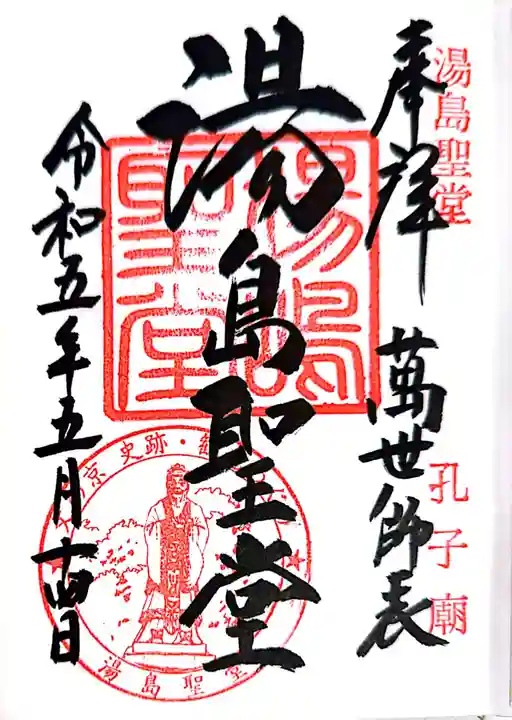 湯島聖堂
孔子廟
奉拝
萬世師表
湯島聖堂
令和五年五月十四日
湯島聖堂
史跡・
湯島聖堂